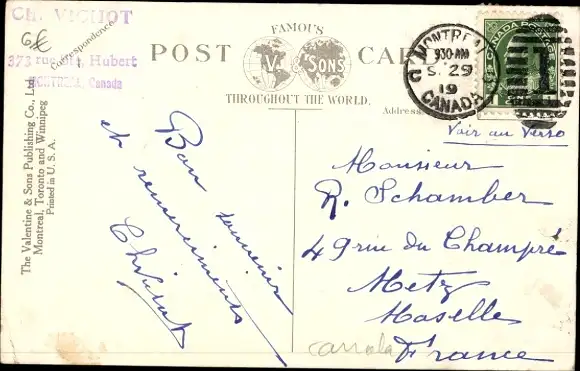 Ch. VICHOT
373 rue St. Hubert
MONTREAL, Canada
6€
Correspondence
POST
FAMOUS
V. & SONS
THROUGHOUT THE WORLD.
CAR
Address
MONTREAL
930 AM
S. 29
19
CANADA
CANADA POSTAGE
1
The Valentine & Sons Publishing Co., Ltd.
Montreal, Toronto and Winnipeg
Printed in U. S. A.
Bon souvenir
et remerciements
Ch Vichot
Voir au Verso
Monsieur
R. Schamber
49 rue du Champré
Metz
Moselle
France
canada